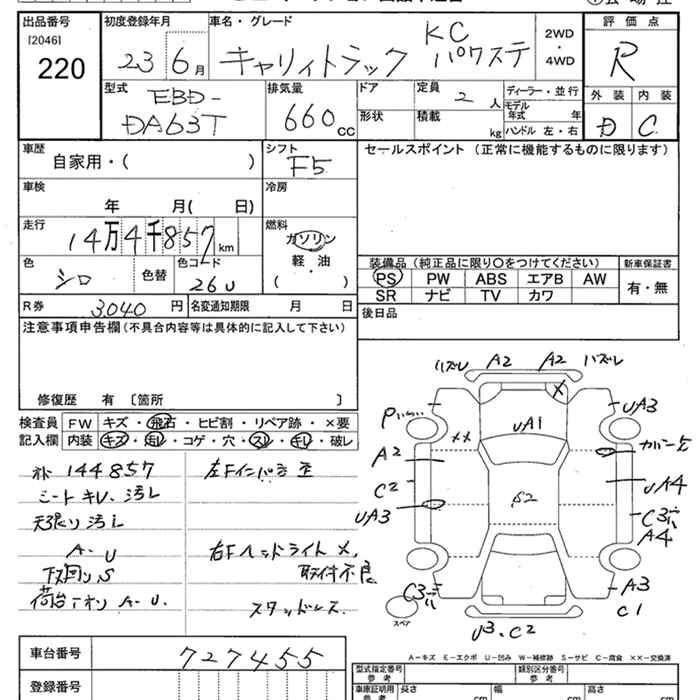 出品番号
[2046]
220
初度登録年月
23 6月
車名・グレード
キャリィトラック
KC
パワステ
2WD
・
4WD
評価点
R
外装 内装
D C
型式
EBD-
DA63T
排気量
660cc
ドア
形状
定員
2人
積載
kg
ディーラー・並行
モデル年式 年
ハンドル 左・右
車歴
自家用・( )
シフト
F5
セールスポイント (正常に機能するものに限ります)
車検
年 月( 日)
冷房
走行
14万4千857km
燃料
ガソリン
軽・油
( )
色
シロ
色替
色コード
26U
装備品 (純正品に限り○をつけてください)
PS PW ABS エアB AW
SR ナビ TV カワ
新車保証書
有・無
R券
3,040円
名変通知期限 月 日
後日品
注意事項申告欄 (不具合内容等は具体的に記入して下さい)
修復歴 有 〔箇所 〕
検査員
記入欄
FW キズ・飛石・ヒビ割・リペア跡・×要
内装 キズ・汚レ・コゲ・穴・スレ・キレ・破レ
144857
シートキレ、汚レ
天張り汚レ
A・U
下廻りS
荷台アオリ A・U.
左Fインパネ歪
右Fヘッドライト×、
取付不良
スタッドレス
ハズレ A2 A2 ハズレ
UA1
UA3
A2
C2
UA3
S2
UA4
A4
A3
C1
U3・C2
スペア
A−キズ E−エクボ U−凹み W−補修跡 S−サビ C−腐食 ××−交換済
車台番号
727455
登録番号
型式指定番号
参考
類別区分番号
参考
車庫証明用
参考
長さ cm
幅 cm
高さ cm